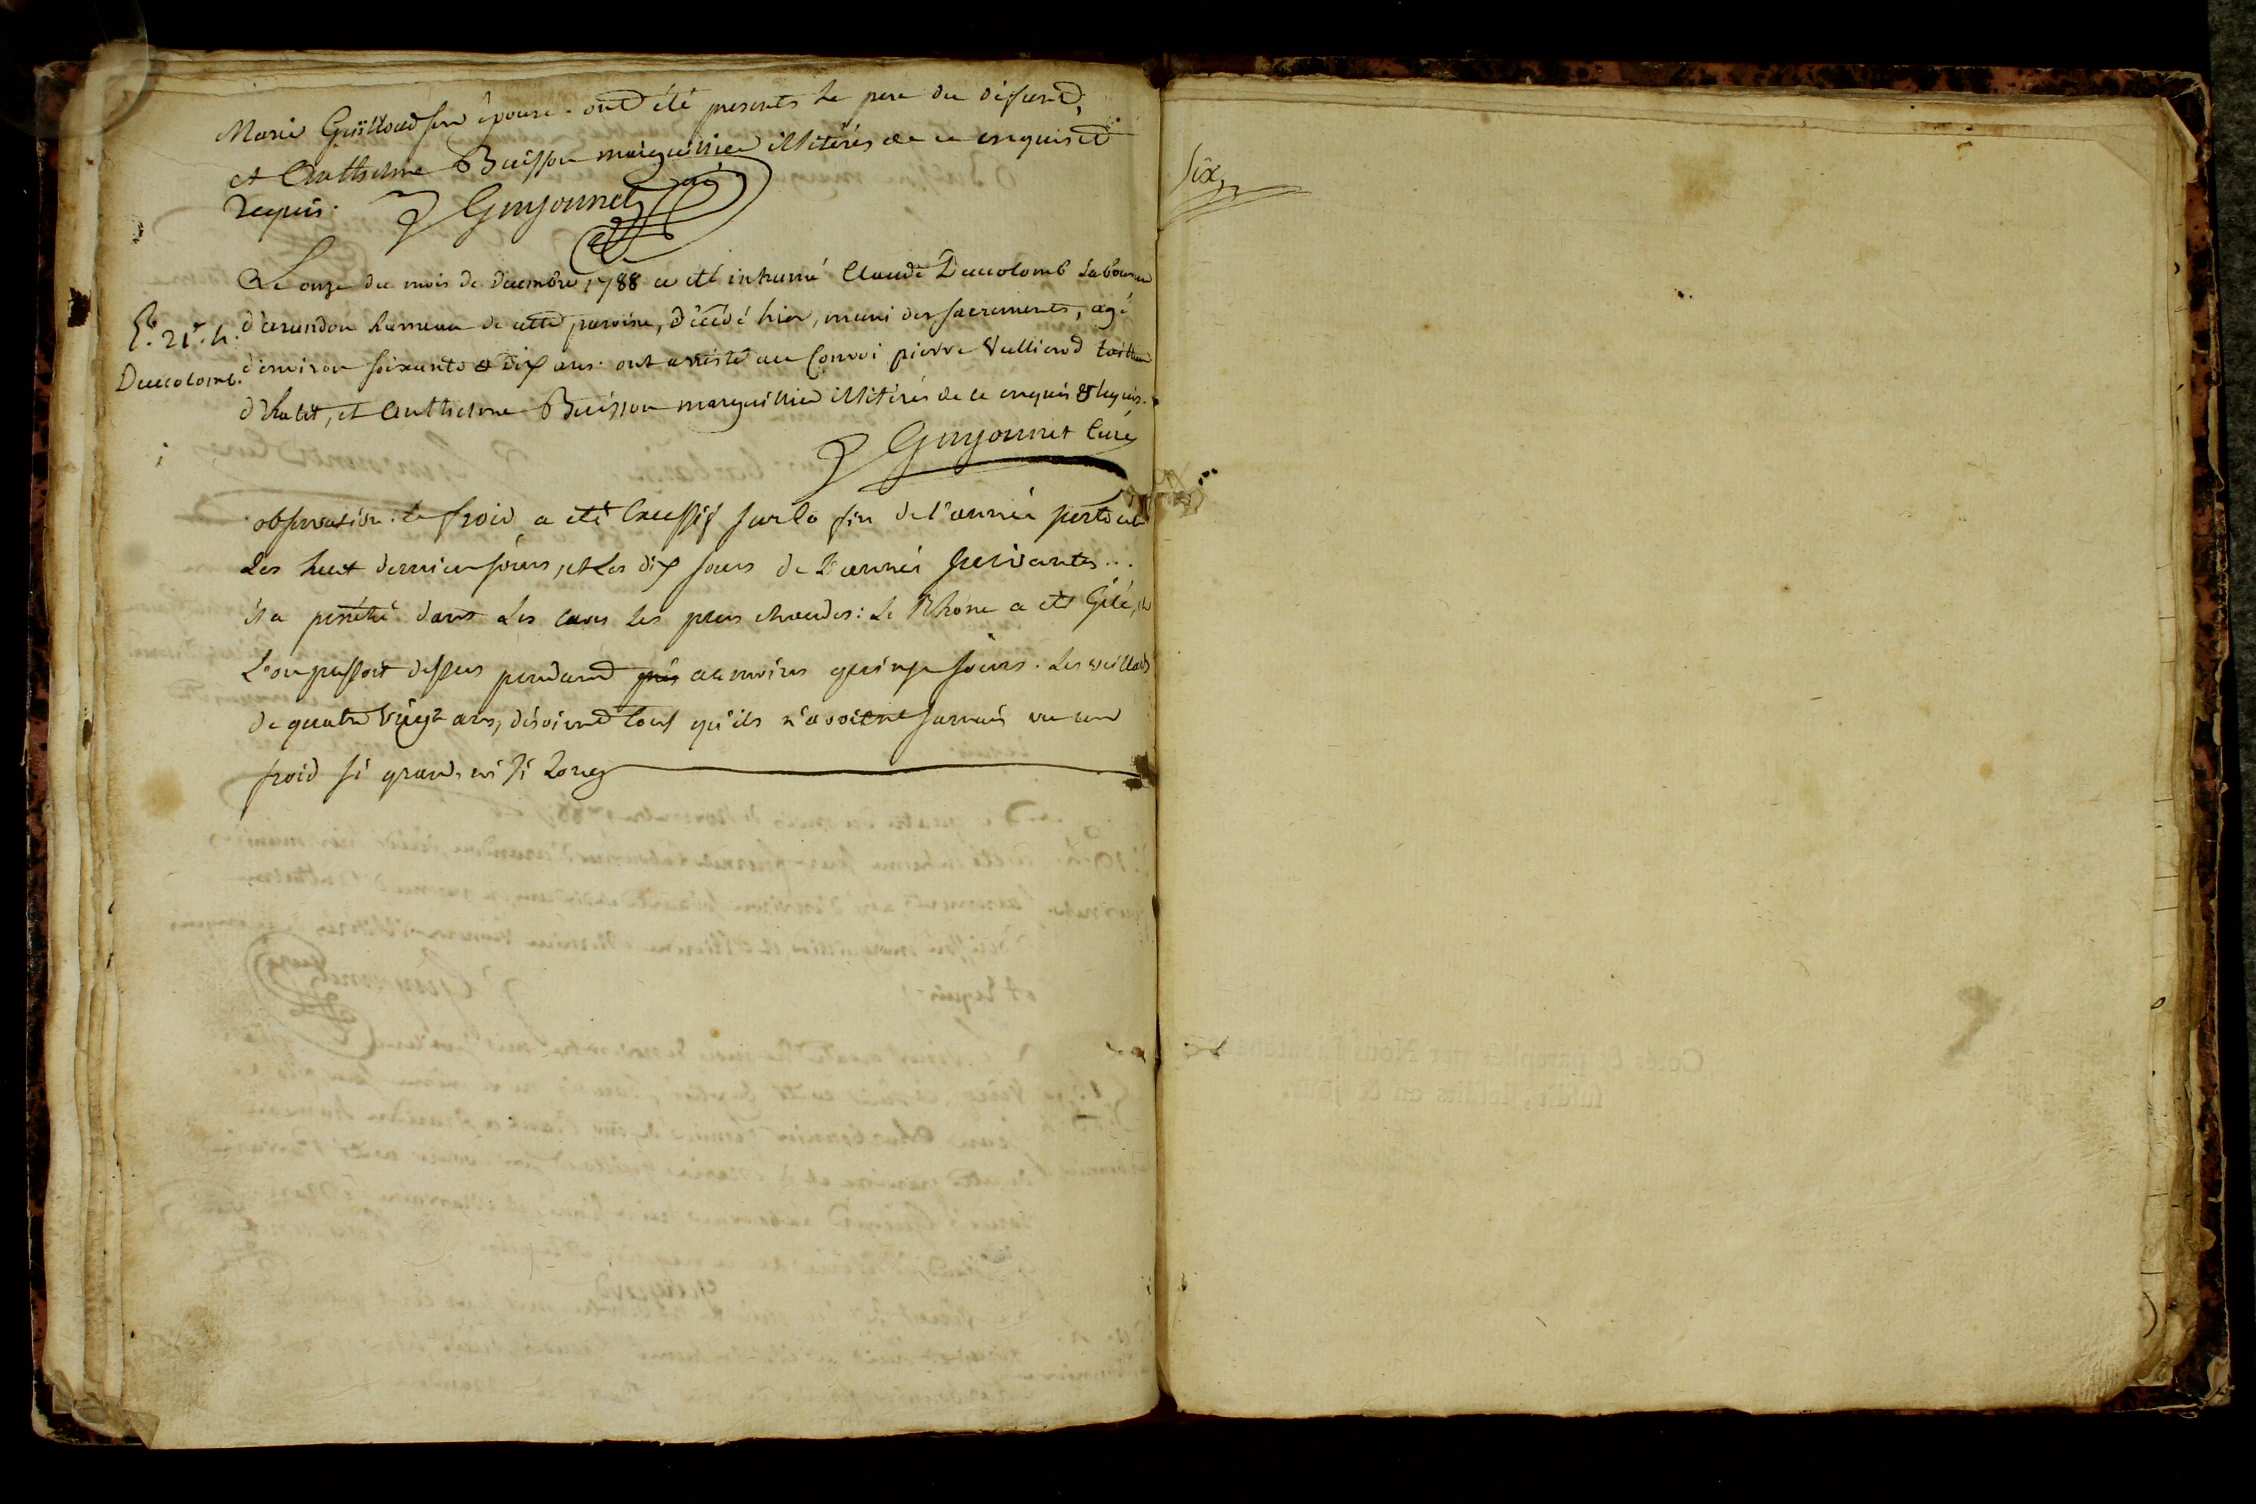 Marie Guilloud son épouse. ont été presents le pere du défunt,
et Anthelme Buisson marguillier illitérés de ce enquis et
requis. Guyonnet
Le onze du mois de decembre 1788 a été inhumé Claude Ducolomb laboureur
d'arandon hameau de cette paroisse, décédé hier, muni des sacrements, agé
d'environ soixante et dix ans. ont assisté au Convoi pierre Vullierod
S. 21. h.
Ducolomb.
et Anthelme Buisson marguillier illitérés de ce enquis et requis.
Guyonnet Curé
observation: le froid a été Excessif sur la fin de l'année
Les huit derniers jours, et les dix jours de L'année suivante...
il a pénétré dans les caves les plus chaudes: Le Rhône a été Gélé, et
L'on passoit dessus pendant près au moins quinze jours. Les vieillards
de quatre vingt ans, disoient tous qu'ils n'avoient jamais vu un
froid si grand, ni si long
six